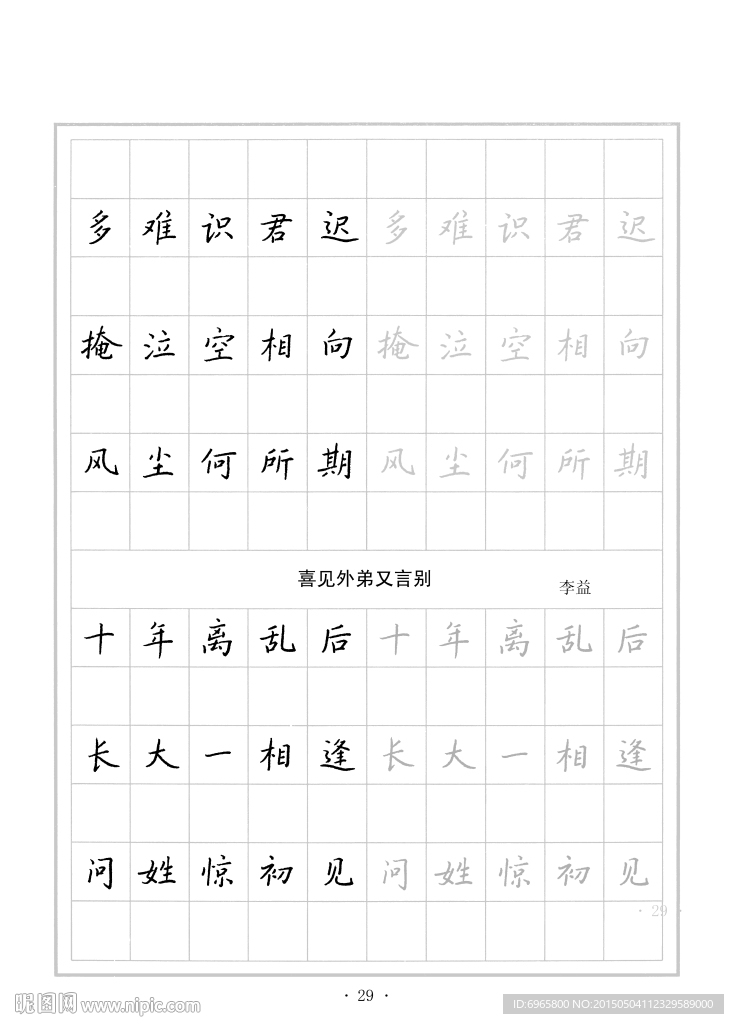 多难识君迟多难识君迟
掩泣空相向掩泣空相向
风尘何所期风尘何所期
喜见外弟又言别
李益
十年离乱后十年离乱后
长大一相逢长大一相逢
问姓惊初见问姓惊初见
· 29 ·
· 29 ·
昵图网 www.nipic.com
ID:6965800 NO:20150504112329589000